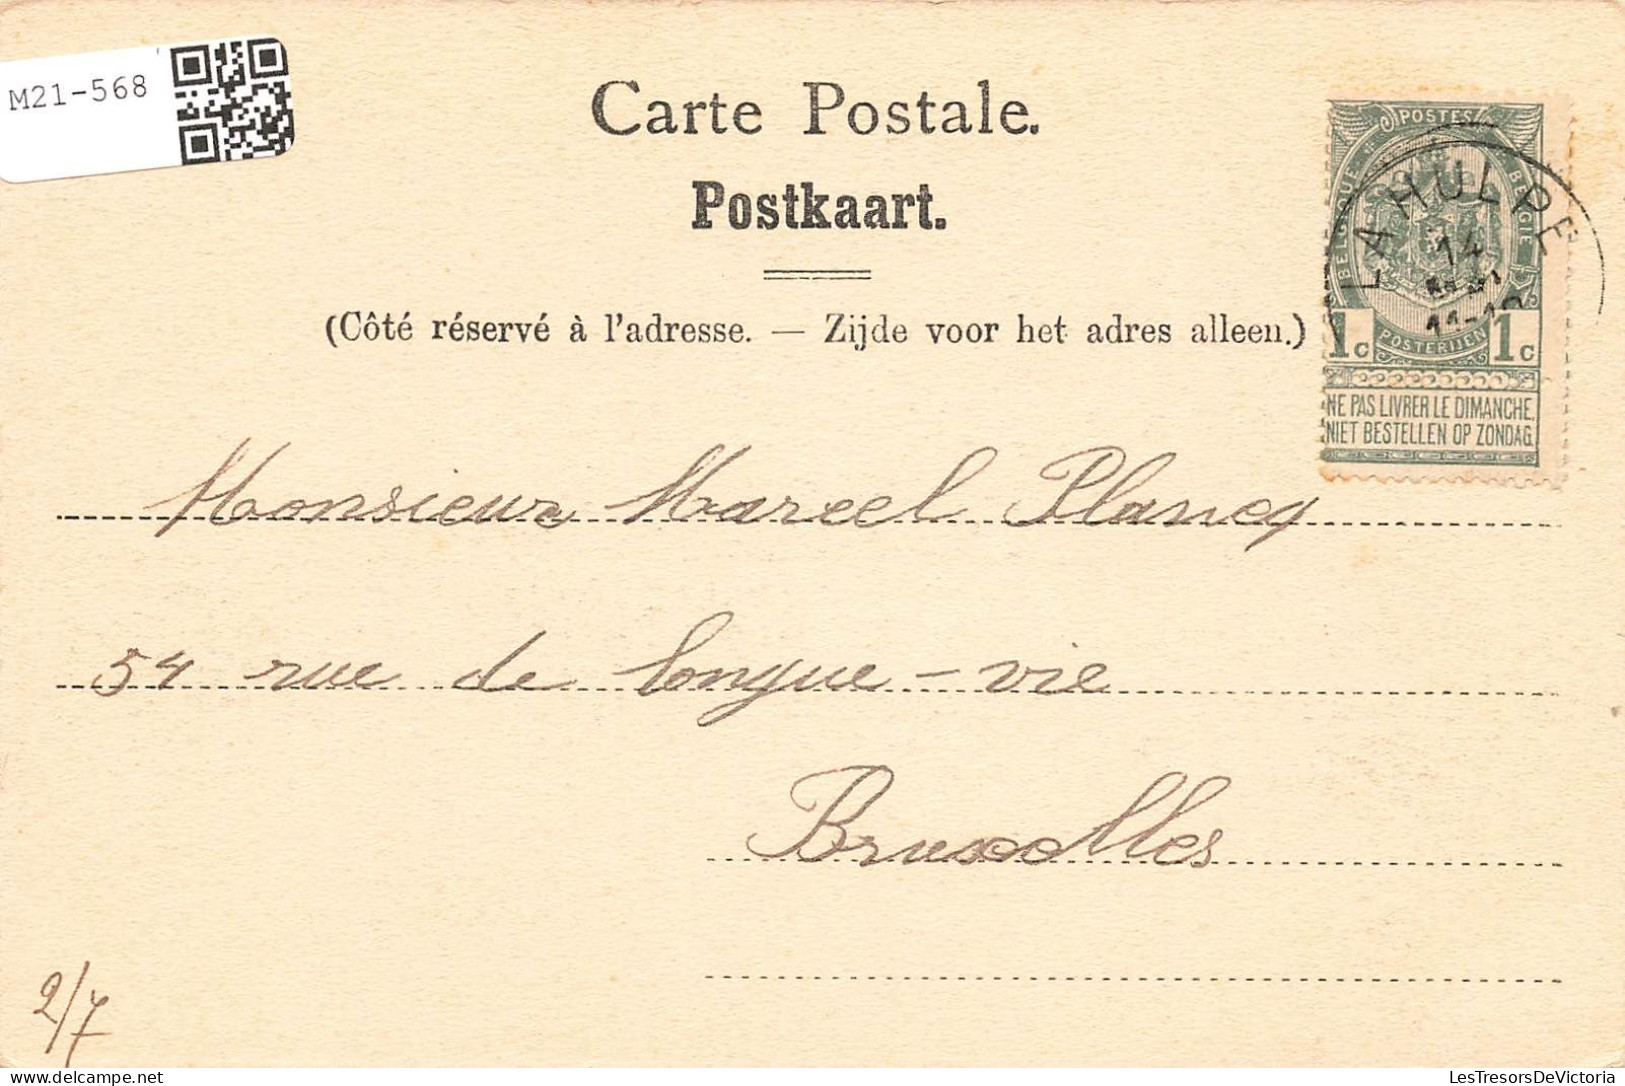 M21-568
Carte Postale.
Postkaart.
(Côté réservé à l'adresse. — Zijde voor het adres alleen.)
POSTES
BELGIQUE
BELGIE
LA HULPE
14
POSTERIJEN
1c 1c
NE PAS LIVRER LE DIMANCHE.
NIET BESTELLEN OP ZONDAG.
Monsieur Marcel Plancq
54 rue de longue-vie
Bruxelles
2/7
delcampe.net
LesTresorsDeVictoria